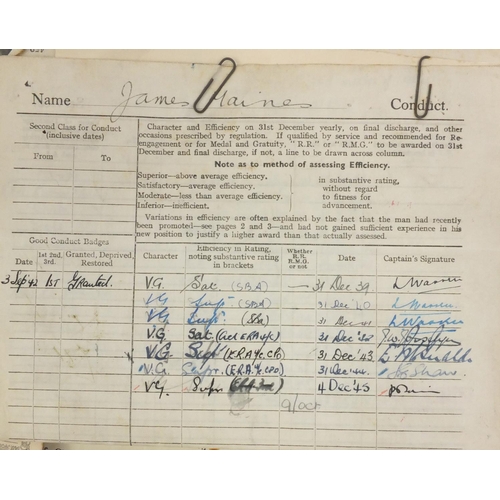 Name James Haines Conduct.
Second Class for Conduct
(inclusive dates)
From To
Character and Efficiency on 31st December yearly, on final discharge, and other
occasions prescribed by regulation. If qualified by service and recommended for Re-
engagement or for Medal and Gratuity, "R.R." or "R.M.G." to be awarded on 31st
December and final discharge, if not, a line to be drawn across column.
Note as to method of assessing Efficiency.
Superior—above average efficiency.
Satisfactory—average efficiency.
Moderate—less than average efficiency.
Inferior—inefficient.
in substantive rating,
without regard
to fitness for
advancement.
Variations in efficiency are often explained by the fact that the man had recently
been promoted—see pages 2 and 3—and had not gained sufficient experience in his
new position to justify a higher award than that actually assessed.
Good Conduct Badges
Date 1st 2nd, 3rd. Granted, Deprived, Restored
Character
Efficiency in Rating,
noting substantive rating
in brackets
Whether
R.R.
R.M.G.
or not
Date
Captain's Signature
3 Sep '42 1ST Granted.
V.G. Sat. (SBA) — 31 Dec 39 L Warren
VG Supr (SBA) 31 Dec '40 L Warren
VG Supr (SBA) 31 Dec 41 L Warren
V.G. Sat. 31 Dec '42
V.G. Supr 31 Dec '43
V.G. Supr. 31 Dec '44
VG Supr 4 Dec '45
9/oct